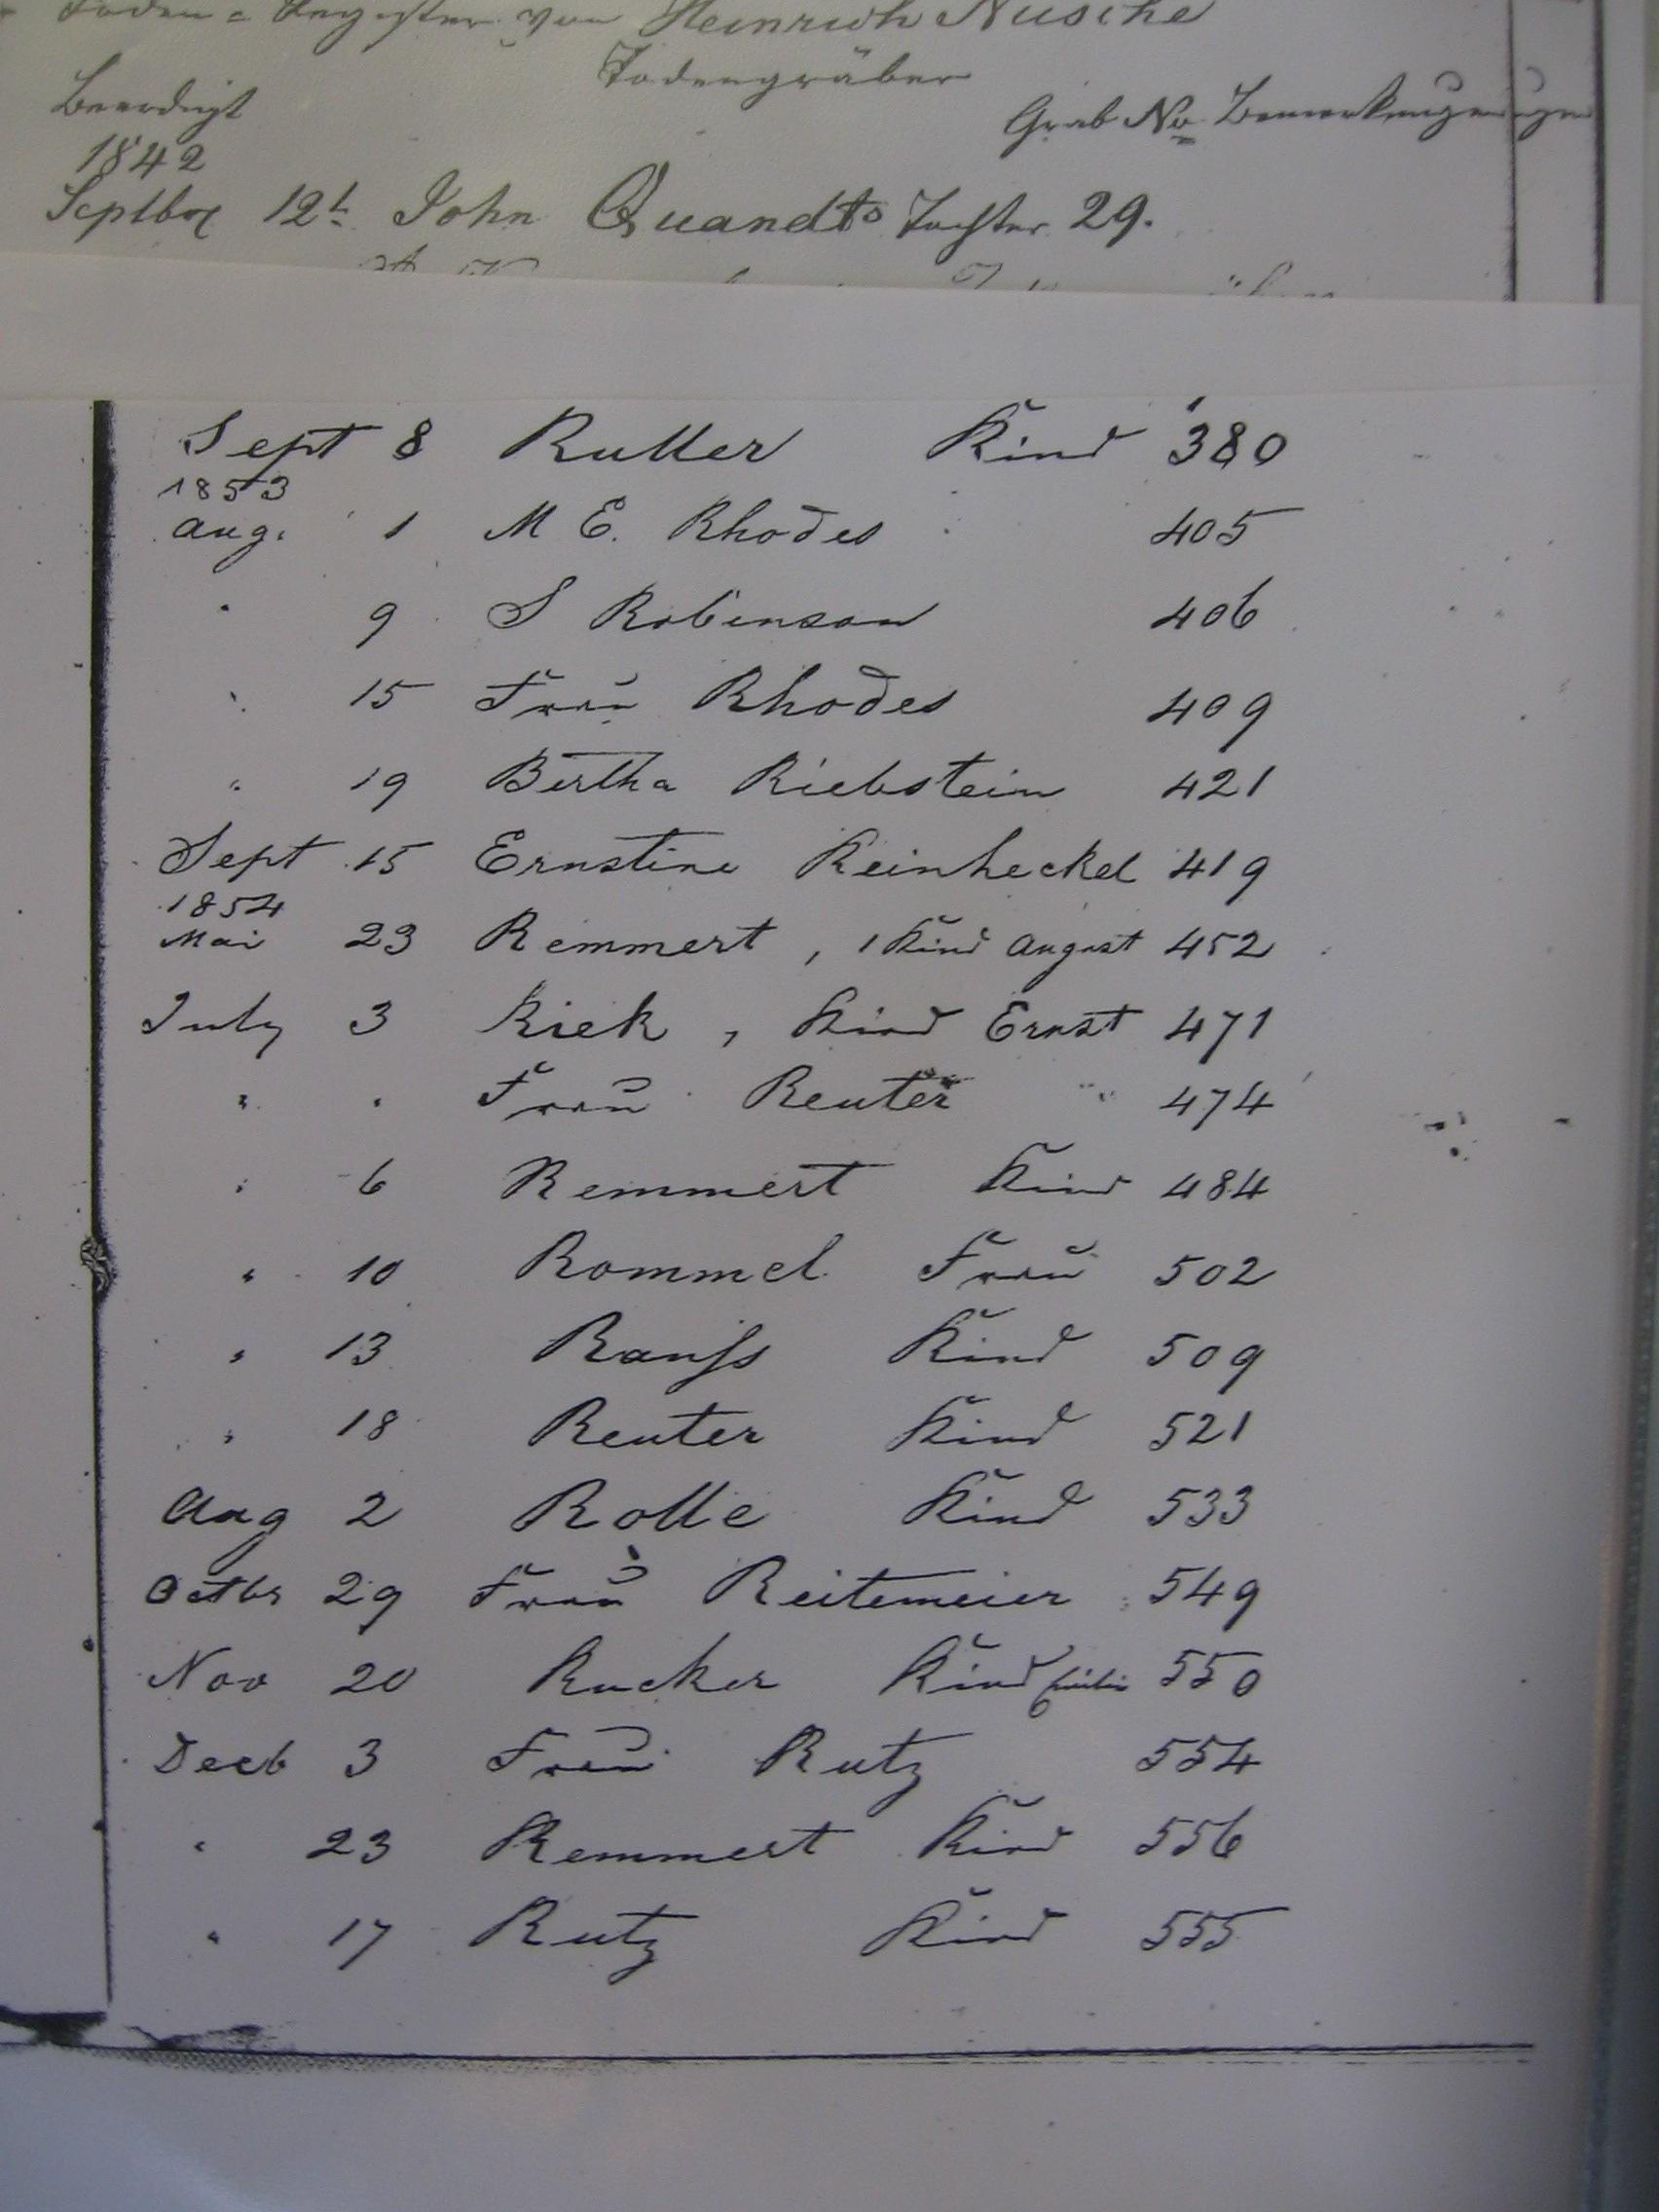 Toden = Register von Heinrich Nusche
Todengräber
Beerdigt Grab No Bemerkungen
1842
Septbr 12t John Quandts Tochter 29.
Sept 8 Ruller Kind 380
1853
Aug. 1 M E. Rhodes 405
" 9 S Robinson 406
" 15 Frau Rhodes 409
" 19 Bertha Riebstein 421
Sept 15 Ernstine Reinheckel 419
1854
Mai 23 Remmert, 1 Kind August 452
July 3 Riek, Kind Ernst 471
" " Frau Reuter " 474
" 6 Remmert Kind 484
" 10 Rommel Frau 502
" 13 Kind 509
" 18 Reuter Kind 521
Aug 2 Rolle Kind 533
Octbr 29 Frau Reitemeier 549
Nov 20 Rucker Kind 550
Decb 3 Frau Rutz 554
" 23 Remmert Kind 556
" 17 Rutz Kind 555